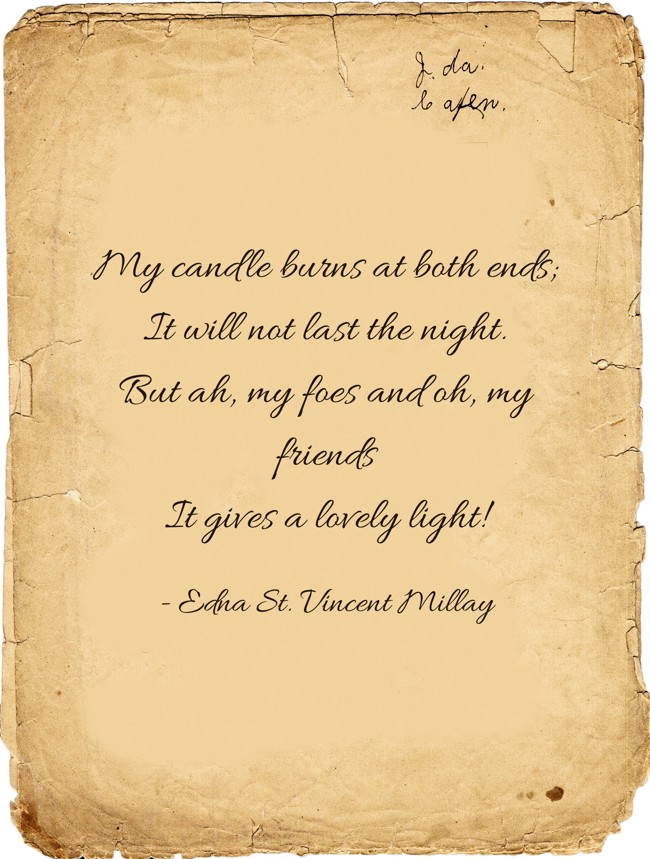 J. da.
My candle burns at both ends;
It will not last the night.
But ah, my foes and oh, my
friends
It gives a lovely light!
- Edna St. Vincent Millay